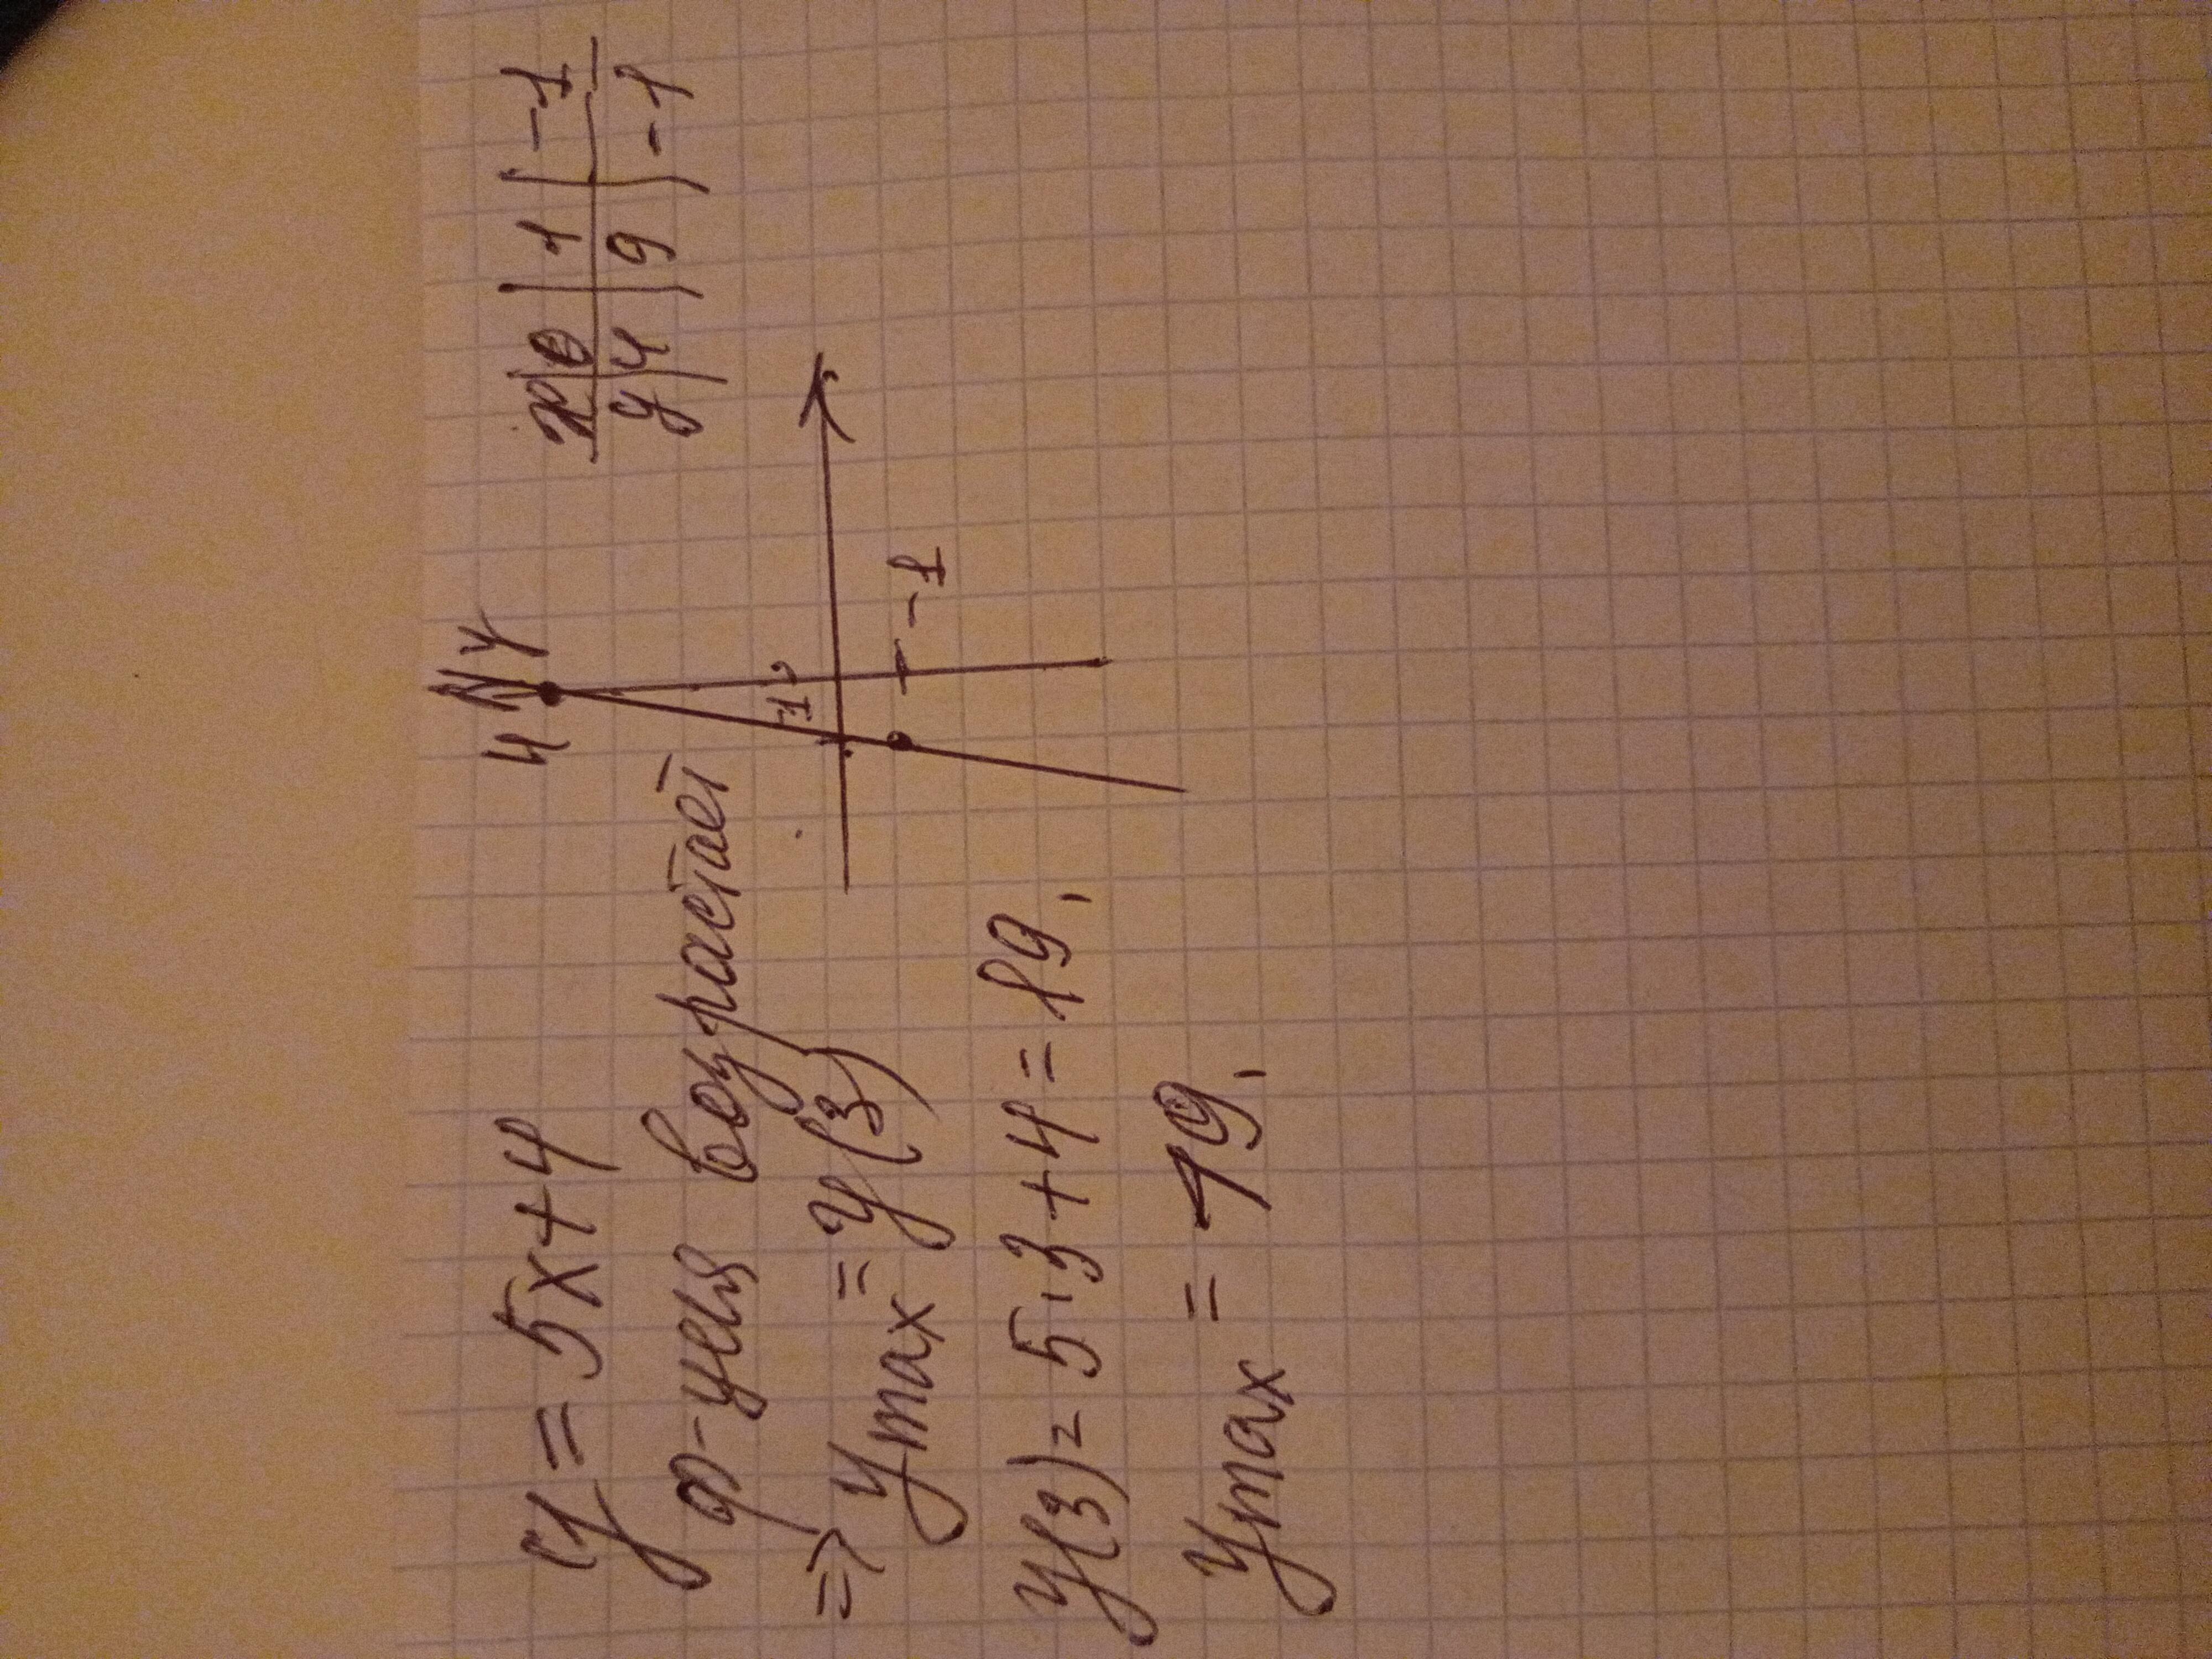 y = 5x+4
ф-ция возрастает
=> ymax = y(3)
y(3) = 5·3+4 = 19.
ymax = 19.
4 y
-1
-1
x 0 1 -1
y 4 9 -1